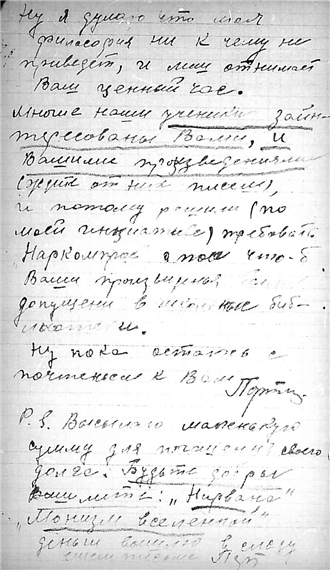 Ну я думаю что моя
философия ни к чему не
приведет, и лиш отнимает
Ваш ценный час.
Многие наши ученики заин-
тересованы Вами, и
Вашими произведениями
(ждите от них писем),
и потому решили (по
моей инициативе) требовать
Наркомпрос
Ваши произведения
допущени в школьные биб-
лиотеки.
Ну пока остаюсь с
почтеньем к Вам
P.S. Высылаю маленькую
сумму для погашения своего
долга. Будьте добры
вышлите: „Нирвана"
„Монизм вселенной"
деньги вышлю в